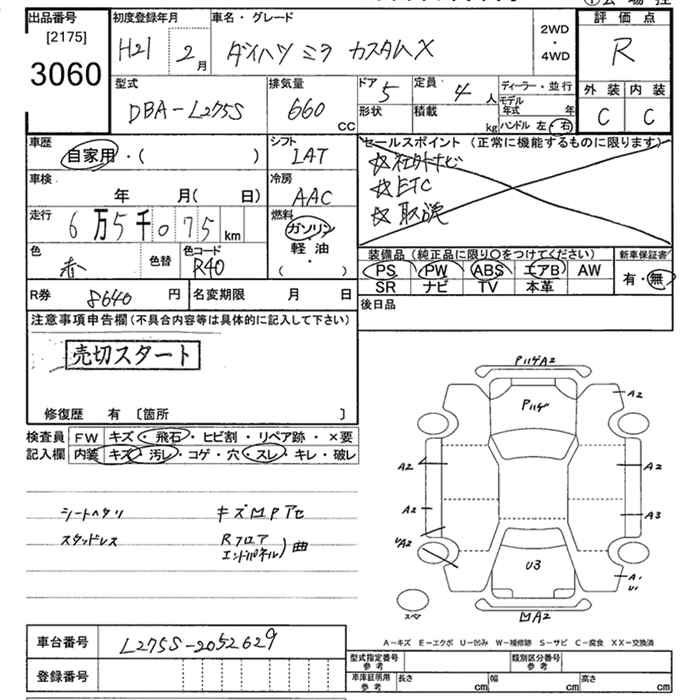 出品番号
[2175]
3060
初度登録年月
H21 2月
車名・グレード
ダイハツ ミラ カスタムX
2WD
・
4WD
評価点
R
外装 内装
C C
型式
DBA-L275S
排気量
660
CC
ドア 5
形状
定員 4人
積載 kg
ディーラー・並行
モデル
年式 年
ハンドル 左・右
車歴
自家用・( )
シフト
IAT
車検
年 月( 日)
冷房
AAC
走行
6万5千075km
燃料
ガソリン
軽油
・
( )
色
赤
色替
色コード
R40
R券 8640円
名変期限 月 日
セールスポイント(正常に機能するものに限ります)
☆社外ナビ
☆ETC
☆取説
装備品(純正品に限り○をつけてください)
PS PW ABS エアB AW
SR ナビ TV 本革
新車保証書
有・無
後日品
注意事項申告欄(不具合内容等は具体的に記入して下さい)
売切スタート
修復歴 有 〔箇所 〕
検査員 FW キズ・飛石・ヒビ割・リペア跡・×要
記入欄 内装 キズ・汚レ・コゲ・穴・スレ・キレ・破レ
シートヘタリ キズMPアセ
スタッドレス Rフロア
エンドパネル)曲
P11ゲA2
P11ゲ
A2
A2 A2
A2 A3
UA2
U3
A1
U1
スペア
MA2
A-キズ E-エクボ U-凹み W-補修跡 S-サビ C-腐食 XX-交換済
車台番号 L275S-2052629
登録番号
型式指定番号
参考
類別区分番号
参考
車庫証明用
参考
長さ cm 幅 cm 高さ cm